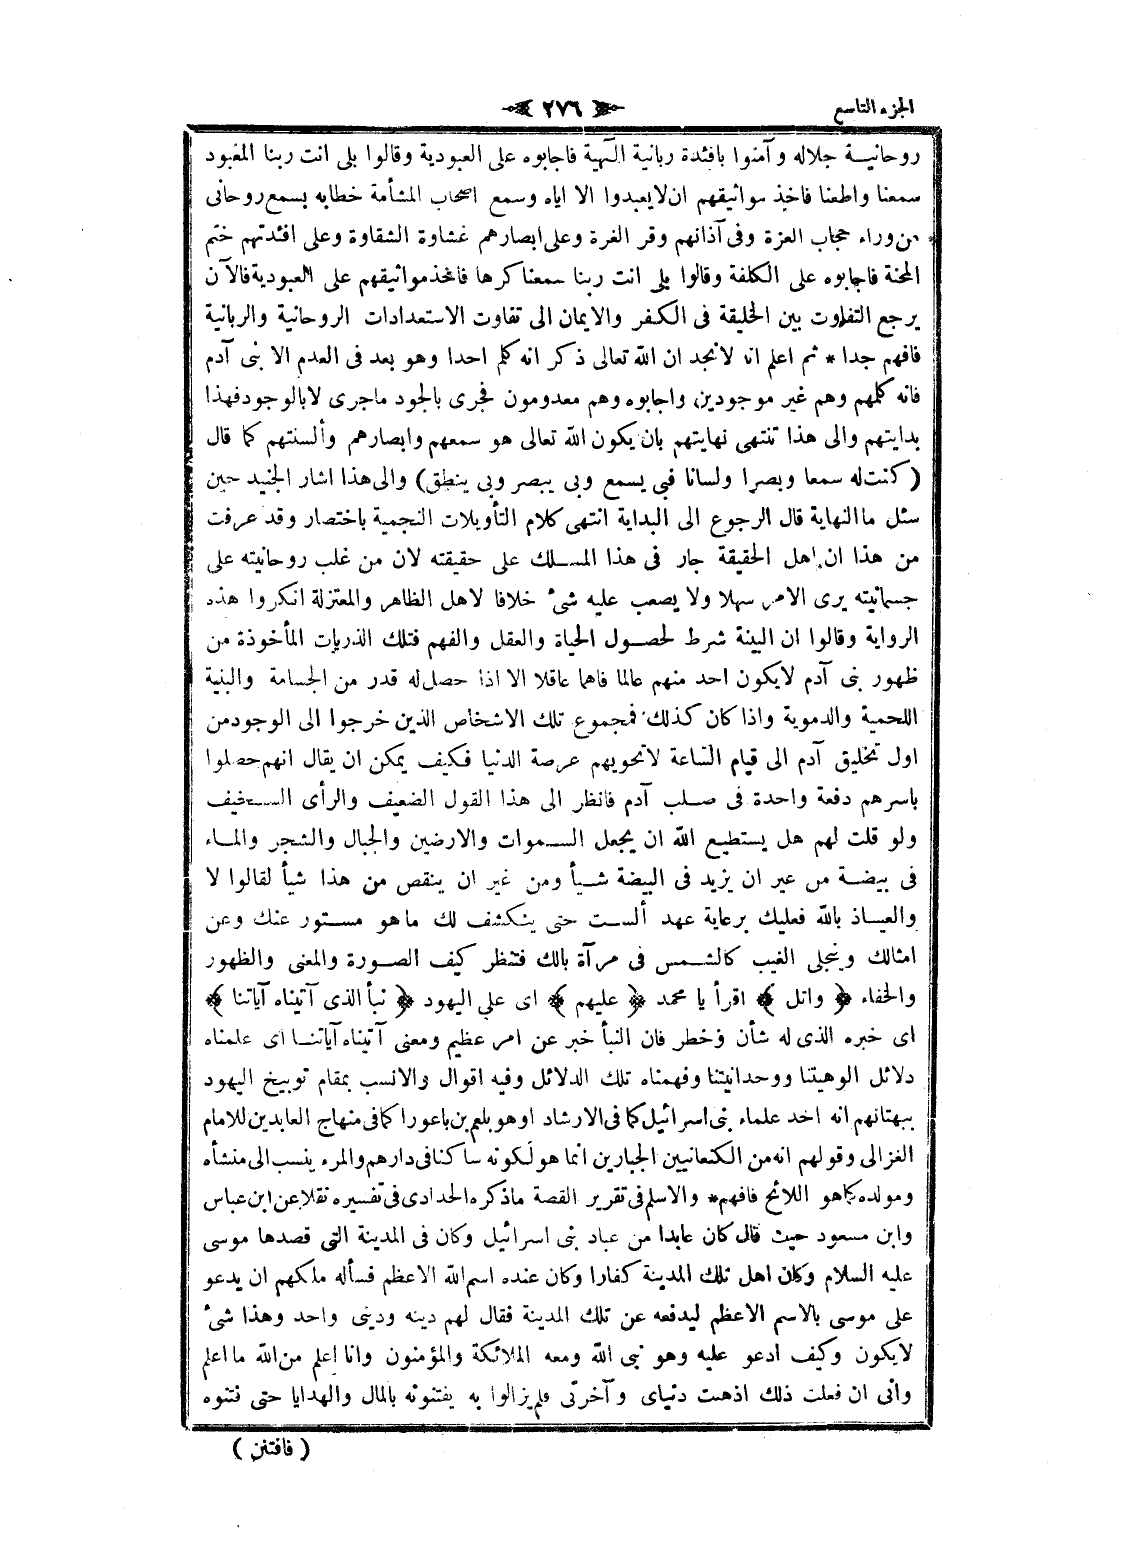 الجزء التاسع
﴿ ٢٧٦ ﴾
روحانيـة جلاله وآمنوا بافئدة ربانية الـٓهية فاجابوه على العبودية وقالوا بلى انت ربنا المعبود
سمعنا واطعنا فاخذ مواثيقهم ان لايعبدوا الا اياه وسمع اصحاب المشأمة خطابه بسمع روحانى
من وراء حجاب العزة وفى آذانهم وقر الغرة وعلى ابصارهم غشاوة الشقاوة وعلى افئدتهم ختم
المحنة فاجابوه على الكلفة وقالوا بلى انت ربنا سمعنا كرها فاخذ مواثيقهم على العبودية فالآن
يرجع التفاوت بين الخليقة فى الكفر والايمان الى تفاوت الاستعدادات الروحانية والربانية
فافهم جدا * ثم اعلم انا لانجد ان الله تعالى ذكر انه كلم احدا وهو بعد فى العدم الا بنى آدم
فانه كلمهم وهم غير موجودين واجابوه وهم معدومون فجرى بالجود ماجرى لابالوجود فهذا
بدايتهم والى هذا تنتهى نهايتهم بان يكون الله تعالى هو سمعهم وابصارهم وألسنتهم كما قال
(كنت له سمعا وبصرا ولسانا فبى يسمع وبى يبصر وبى ينطق) والى هذا اشار الجنيد حين
سئل ما النهاية قال الرجوع الى البداية انتهى كلام التأويلات النجمية باختصار وقد عرفت
من هذا ان اهل الحقيقة جار فى هذا المسلك على حقيقته لان من غلب روحانيته على
جسمانيته يرى الامر سهلا ولا يصعب عليه شىء خلافا لاهل الظاهر والمعتزلة انكروا هذه
الرواية وقالوا ان البنية شرط لحصول الحياة والعقل والفهم فتلك الذريات المأخوذة من
ظهور بنى آدم لايكون احد منهم عالما فاهما عاقلا الا اذا حصل له قدر من الجسامة والبنية
اللحمية والدموية واذا كان كذلك فمجموع تلك الاشخاص الذين خرجوا الى الوجود من
اول تخليق آدم الى قيام الساعة لاتحويهم عرصة الدنيا فكيف يمكن ان يقال انهم حصلوا
باسرهم دفعة واحدة فى صلب آدم فانظر الى هذا القول الضعيف والرأى السخيف
ولو قلت لهم هل يستطيع الله ان يجعل السموات والارضين والجبال والشجر والماء
فى بيضة من غير ان يزيد فى البيضة شيأ ومن غير ان ينقص من هذا شيأ لقالوا لا
والعياذ بالله فعليك برعاية عهد ألست حتى ينكشف لك ماهو مستور عنك وعن
امثالك ويتجلى الغيب كالشمس فى مرآة بالك فتنظر كيف الصورة والمعنى والظهور
والخفاء ﴿ واتل ﴾ اقرأ يا محمد ﴿ عليهم ﴾ اى على اليهود ﴿ نبأ الذى آتيناه آياتنا ﴾
اى خبره الذى له شأن وخطر فان النبأ خبر عن امر عظيم ومعنى آتيناه آياتنا اى علمناه
دلائل الوهيتنا ووحدانيتنا وفهمناه تلك الدلائل وفيه اقوال والانسب بمقام توبيخ اليهود
ببهتانهم انه احد علماء بنى اسرائيل كما فى الارشاد او هو بلعم بن باعورا كما فى منهاج العابدين للامام
الغزالى وقولهم انه من الكنعانيين الجبارين انما هو لكونه ساكنا فى دارهم والمرء ينسب الى منشأه
ومولده كما هو اللائح فافهم* والاسلم فى تقرير القصة ماذكره الحدادى فى تفسيره نقلا عن ابن عباس
وابن مسعود حيث قال كان عابدا من عباد بنى اسرائيل وكان فى المدينة التى قصدها موسى
عليه السلام وكان اهل تلك المدينة كفارا وكان عنده اسم الله الاعظم فسأله ملكهم ان يدعو
على موسى بالاسم الاعظم ليدفعه عن تلك المدينة فقال لهم دينه ودينى واحد وهذا شىء
لايكون وكيف ادعو عليه وهو نبى الله ومعه الملائكة والمؤمنون وانا اعلم من الله ما اعلم
وانى ان فعلت ذلك اذهبت دنياى وآخرتى فلم يزالوا به يفتنونه بالمال والهدايا حتى فتنوه
( فافتتن )